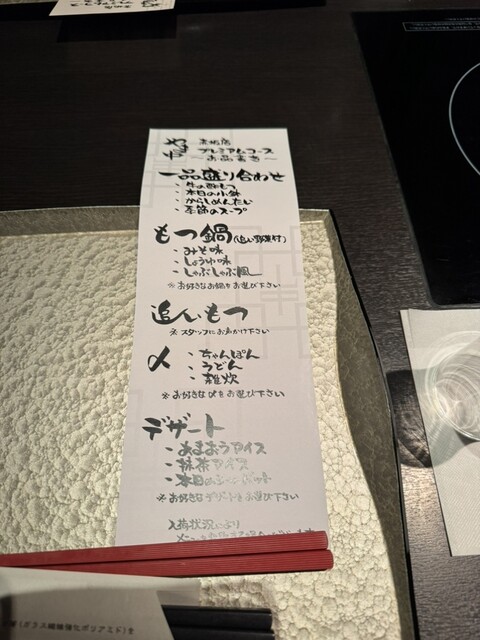 やま中
赤坂店
プレミアムコース
〜お品書き〜
一品盛り合わせ
・牛の酢もつ
・本日の小鉢
・からしめんたい
・季節のスープ
もつ鍋(追い野菜付)
・みそ味
・しょうゆ味
・しゃぶしゃぶ風
※お好きなお鍋をお選び下さい
追いもつ
※スタッフにお声かけ下さい
〆
・ちゃんぽん
・うどん
・雑炊
※お好きな〆をお選び下さい
デザート
・あまおうアイス
・抹茶アイス
・本日のシャーベット
※お好きなデザートをお選び下さい
入荷状況により
(ガラス繊維強化ポリアミド)